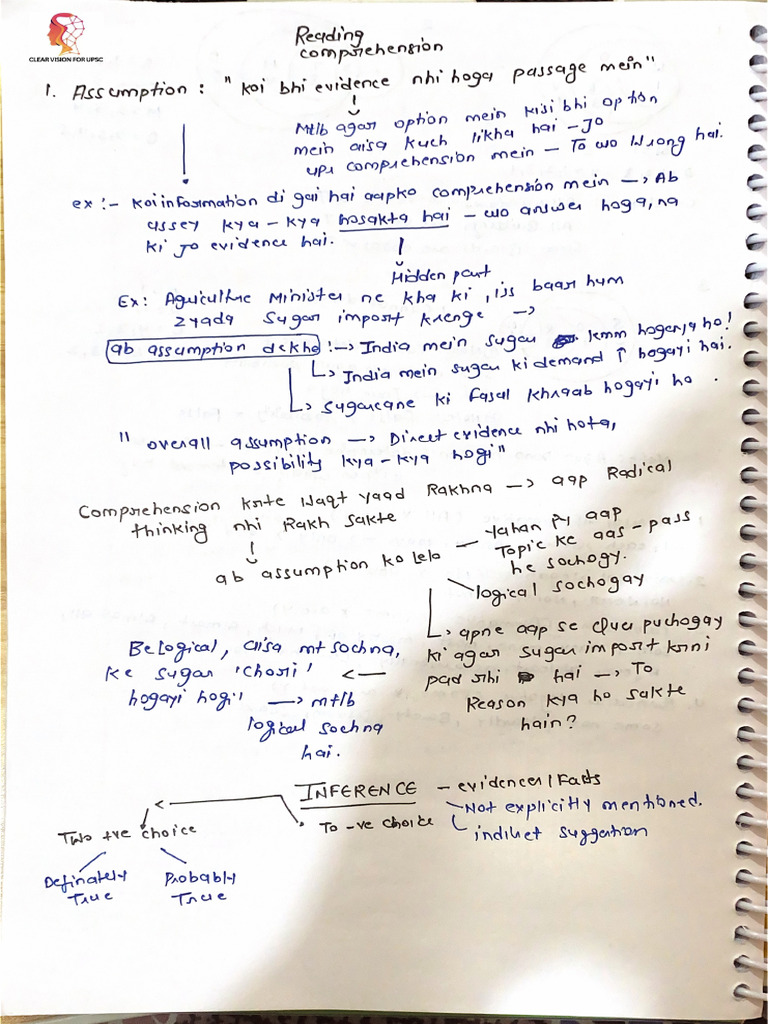 CLEAR VISION FOR UPSC
Reading
comprehension
1. Assumption : "koi bhi evidence nhi hoga passage mein"
Mtlb agar option mein kisi bhi option
mein aisa kuch likha hai - Jo
upr comprehension mein - To wo wrong hai.
ex :- koi information di gai hai aapko comprehension mein → Ab
assey kya - kya hosakta hai - wo answer hoga, na
ki Jo evidence hai.
Hidden part
Ex: Agriculture Minister ne kha ki, iss baar hum
zyada sugar import krenge →
ab assumption dekho :→ India mein sugar kmm hogayi ho!
↳ India mein sugar ki demand ↑ hogayi hai.
↳ Sugarcane ki fasal khraab hogayi ho.
"overall assumption → Direct evidence nhi hota,
possibility kya - kya hogi"
Comprehension krte waqt yaad Rakhna → aap Radical
thinking nhi Rakh sakte
ab assumption ko lelo - yahan pr aap
Topic ke aas - pass
he sochogy.
logical sochogay
↳ apne aap se Ques puchogay
ki agar sugar import krni
pad rhi hai → To
Reason kya ho sakte
hain?
Be logical, aisa mt sochna,
ke sugar 'chori'
hogayi hogi! → mtlb
logical sochna
hai.
INFERENCE - evidences / Facts
Not explicitly mentioned.
indiket suggation
Two +ve choice
To -ve choice
Definately
True
Probably
True